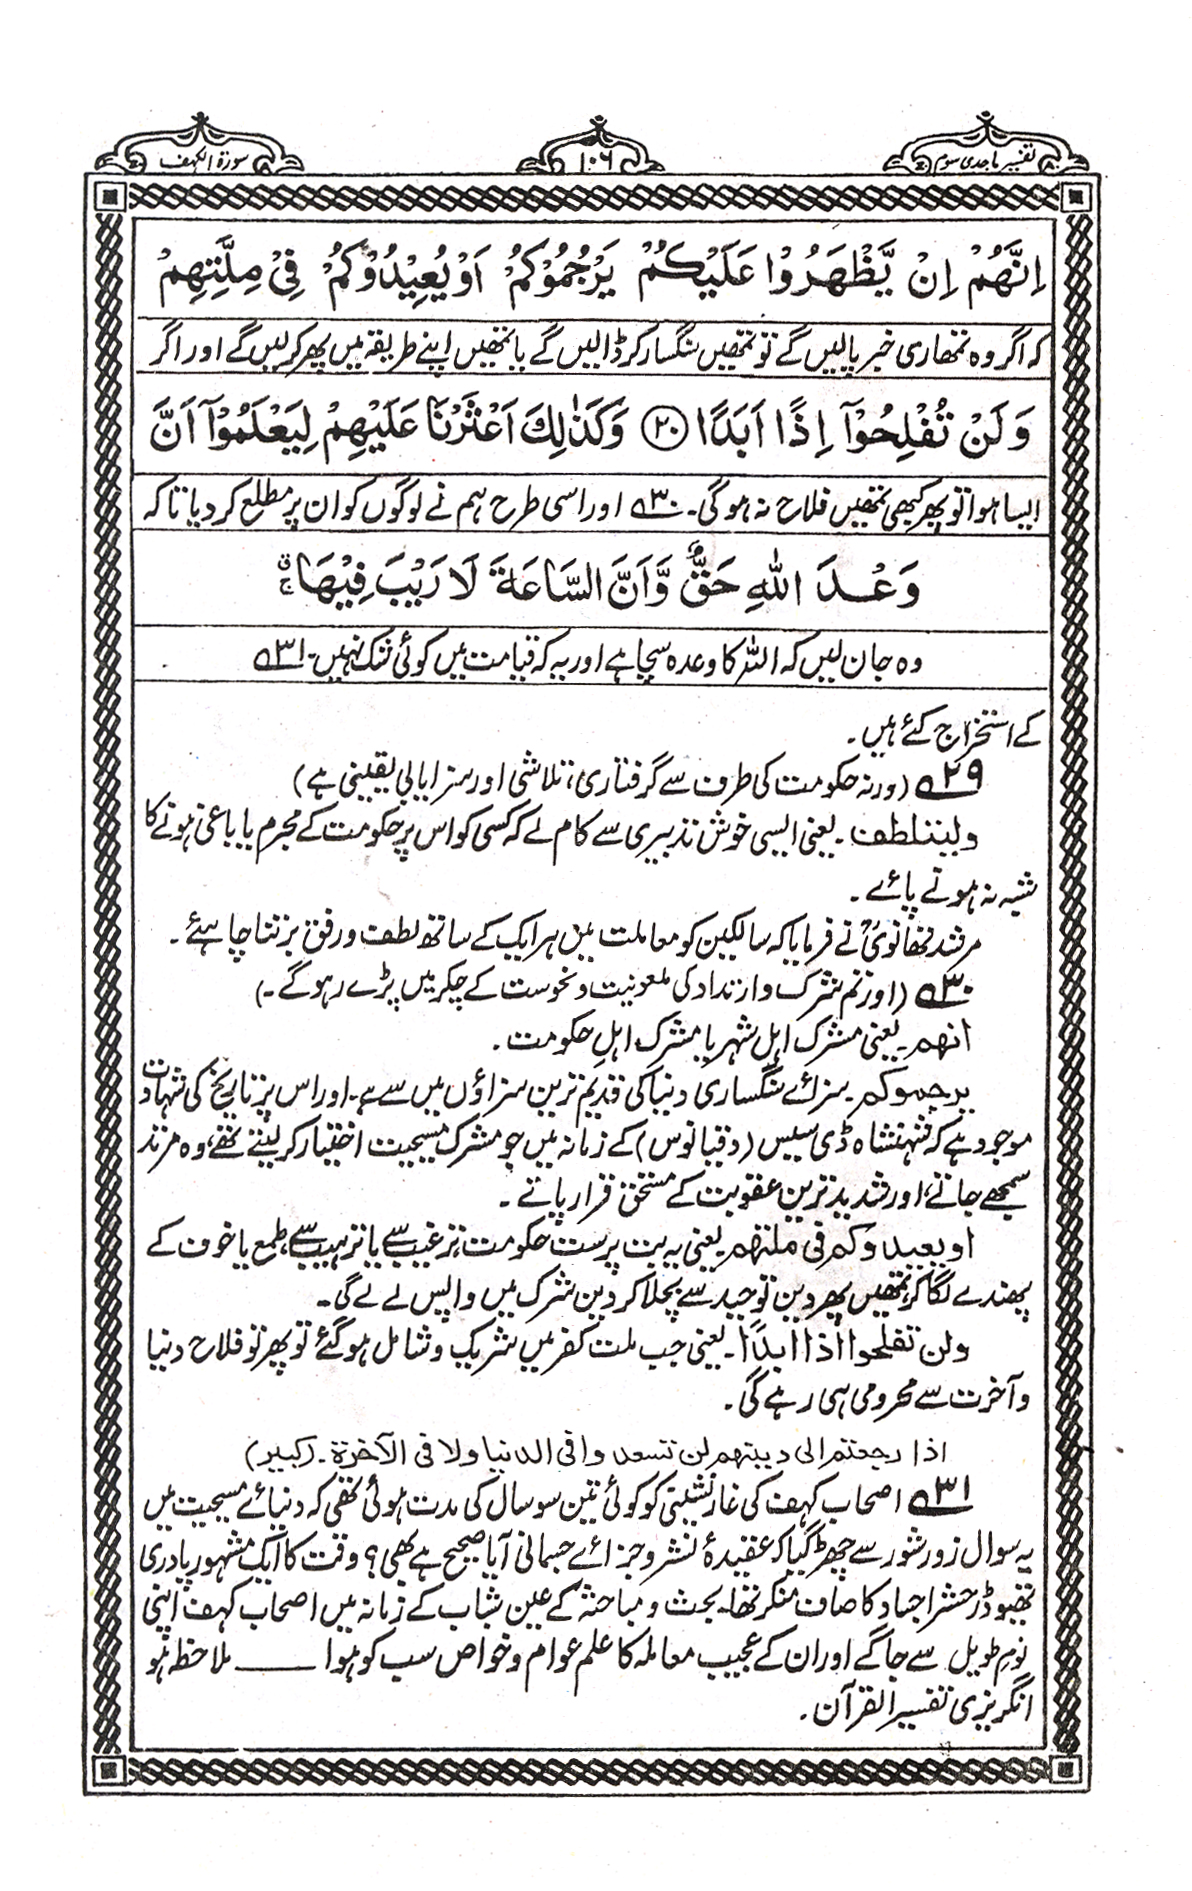 تفسیر ماجدی سوم
۱۰۶
سورۃ الکہف
اِنَّهُمْ اِنْ يَّظْهَرُوْا عَلَيْكُمْ يَرْجُمُوْكُمْ اَوْ يُعِيْدُوْكُمْ فِيْ مِلَّتِهِمْ
کہ اگر وہ تمھاری خبر پالیں گے تو تمھیں سنگسار کر ڈالیں گے یا تمھیں اپنے طریقہ میں پھر کر لیں گے اور اگر
وَلَنْ تُفْلِحُوْٓا اِذًا اَبَدًا ﴿۲۰﴾ وَكَذٰلِكَ اَعْثَرْنَا عَلَيْهِمْ لِيَعْلَمُوْٓا اَنَّ
ایسا ہوا تو پھر کبھی تمھیں فلاح نہ ہوگی۔ ۳۰ اور اسی طرح ہم نے لوگوں کو ان پر مطلع کر دیا تاکہ
وَعْدَ اللّٰهِ حَقٌّ وَّاَنَّ السَّاعَةَ لَا رَيْبَ فِيْهَا ۚ
وہ جان لیں کہ اللہ کا وعدہ سچا ہے اور یہ کہ قیامت میں کوئی شک نہیں۔ ۳۱
کے استخراج کئے ہیں۔
۲۹ (ورنہ حکومت کی طرف سے گرفتاری، تلاشی اور سزا یابی یقینی ہے)
ولیتلطف۔ یعنی ایسی خوش تدبیری سے کام لے کہ کسی کو اس پر حکومت کے مجرم یا باغی ہونے کا
شبہ نہ ہونے پائے۔
مرشد تھانویؒ نے فرمایا کہ سالکین کو معاملت میں ہر ایک کے ساتھ لطف و رفق برتنا چاہئے۔
۳۰ (اور تم شرک و ارتداد کی ملعونیت و نحوست کے چکر میں پڑے رہو گے۔)
انھم۔ یعنی مشرک اہلِ شہر یا مشرک اہلِ حکومت۔
یرجموکم۔ سزائے سنگساری دنیا کی قدیم ترین سزاؤں میں سے ہے۔ اور اس پر تاریخ کی شہادت
موجود ہے کہ شہنشاہ ڈی سیس (دقیانوس) کے زمانہ میں جو مشرک مسیحیت اختیار کر لیتے تھے، وہ مرتد
سمجھے جاتے، اور شدید ترین عقوبت کے مستحق قرار پاتے۔
او یعیدوکم فی ملتھم۔ یعنی یہ بت پرست حکومت ترغیب سے یا ترہیب سے، طمع یا خوف کے
پھندے لگا کر تمھیں پھر دین توحید سے بچلا کر دین شرک میں واپس لے لے گی۔
ولن تفلحوا اذا ابدًا۔ یعنی جب ملت کفر میں شریک و شامل ہو گئے تو پھر تو فلاح دنیا
و آخرت سے محرومی ہی رہے گی۔
اذا رجعتم الی دینھم لن تسعدوا فی الدنیا ولا فی الآخرۃ۔ (کبیر)
۳۱ اصحاب کہف کی غار نشینی کو کوئی تین سو سال کی مدت ہوئی تھی کہ دنیائے مسیحیت میں
یہ سوال زور شور سے چھڑ گیا کہ عقیدۂ نشر و جزائے جسمانی آیا صحیح ہے بھی؟ وقت کا ایک مشہور پادری
تھیوڈر حشر اجساد کا صاف منکر تھا۔ بحث و مباحثہ کے عین شباب کے زمانہ میں اصحاب کہف اپنی
نومِ طویل سے جاگے اور ان کے عجیب معاملہ کا علم عوام و خواص سب کو ہوا ــــــــ ملاحظہ ہو
انگریزی تفسیر القرآن۔